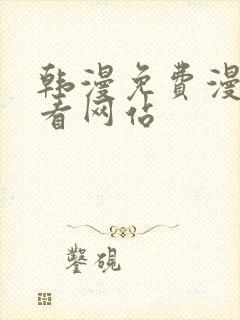 韩漫免费漫
看网佔
鑿硯